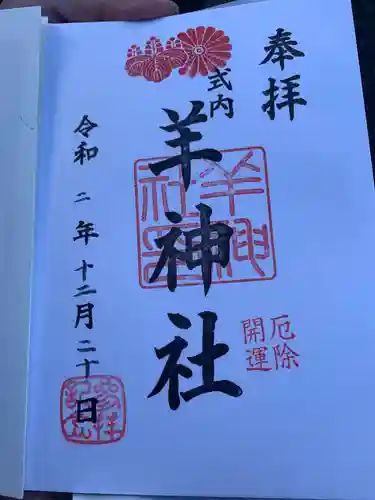 奉拝
式内
羊神社
厄除
開運
令和二年十二月二十日
羊神社印